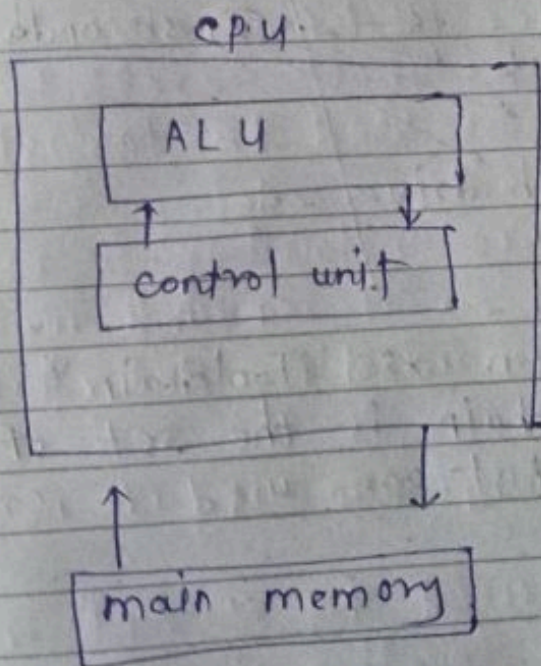 C.P.U.
ALU
control unit
main memory